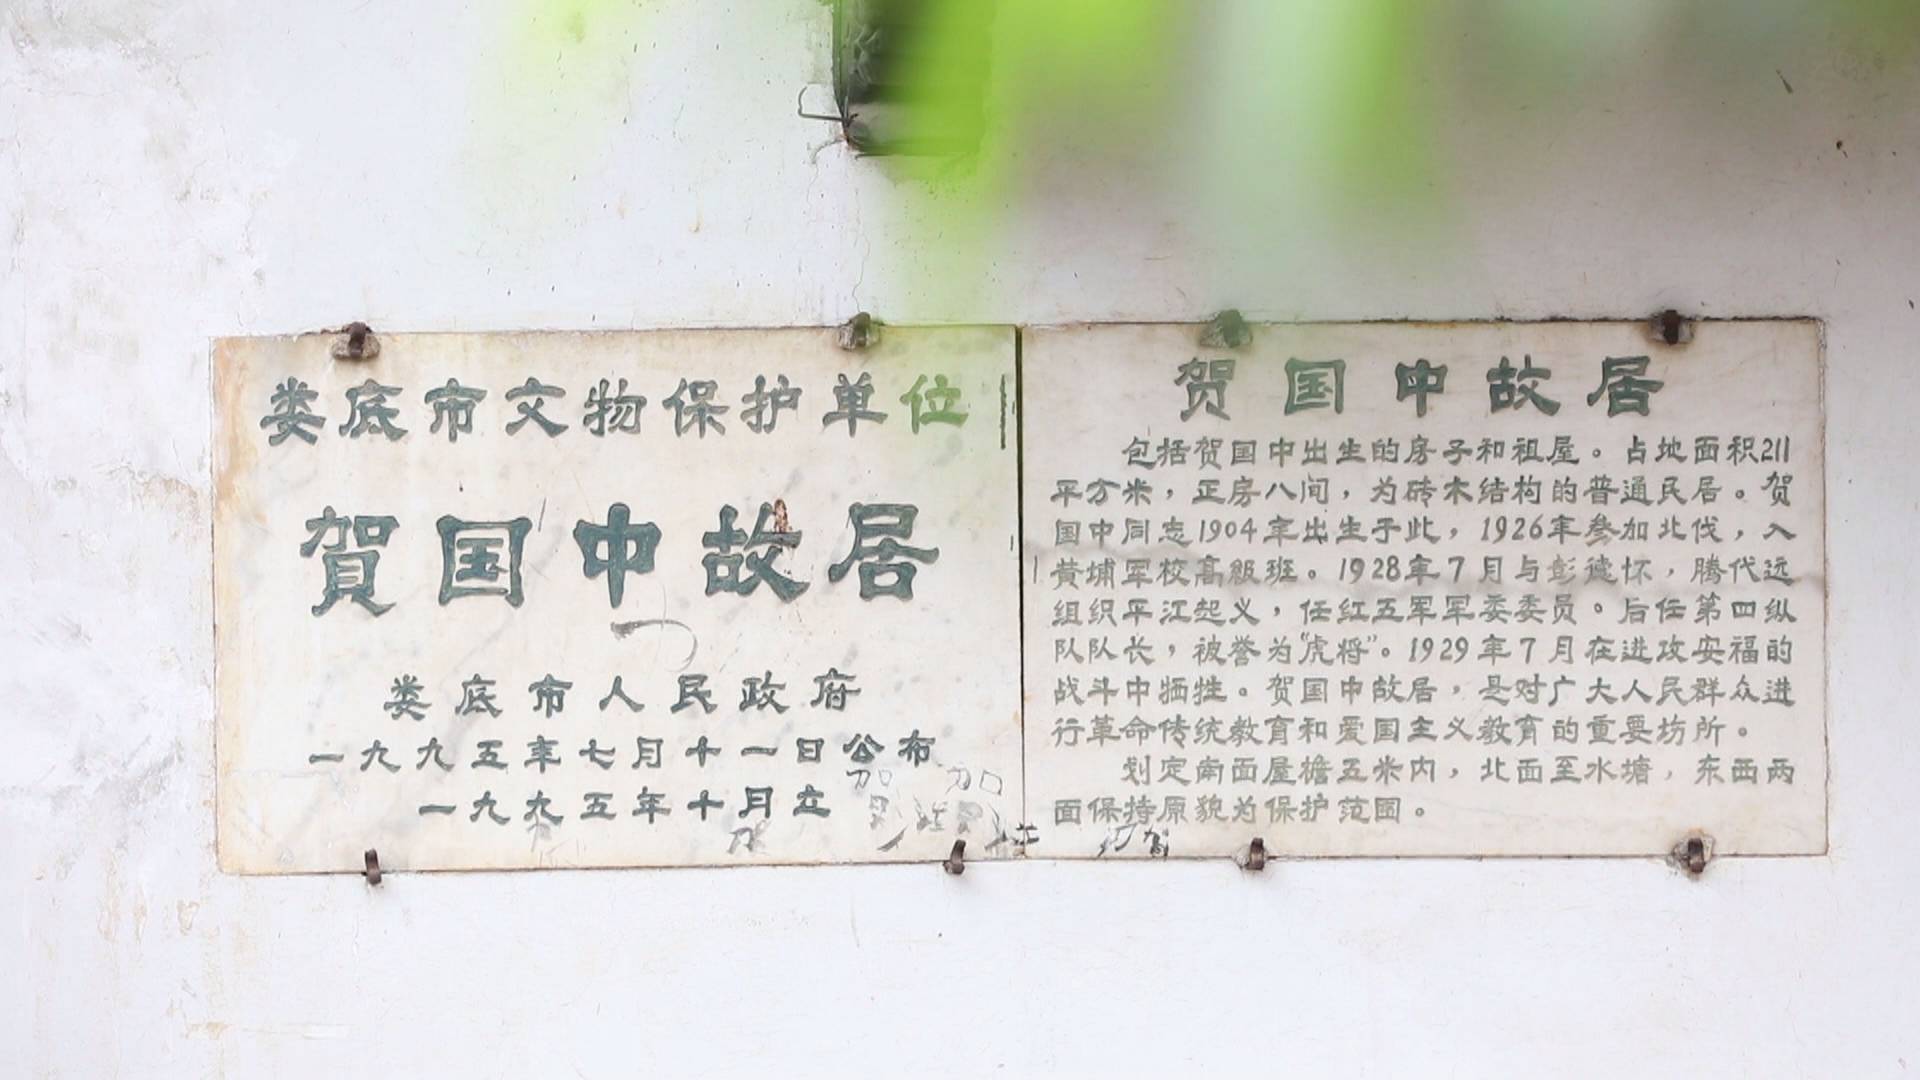 娄底市文物保护单位
賀国中故居
娄底市人民政府
一九九五年七月十一日公布
一九九五年十月立
贺国中故居
包括贺国中出生的房子和祖屋。占地面积211
平方米，正房八间，为砖木结构的普通民居。贺
国中同志1904年出生于此，1926年参加北伐，入
黄埔军校高级班。1928年7月与彭德怀，腾代远
组织平江起义，任红五军军委委员。后任第四纵
队队长，被誉为“虎将”。1929年7月在进攻安福的
战斗中牺牲。贺国中故居，是对广大人民群众进
行革命传统教育和爱国主义教育的重要坊所。
划定南面屋檐五米内，北面至水塘，东西两
面保持原貌为保护范围。